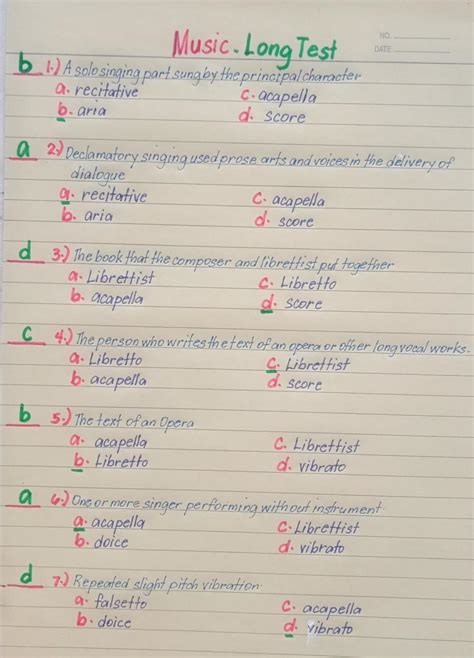 NO.
Music - Long Test
DATE
b 1.) A solo singing part sung by the principal character
a. recitative c. acapella
b. aria d. score
a 2.) Declamatory singing used prose arts and voices in the delivery of
dialogue
a. recitative c. acapella
b. aria d. score
d 3.) The book that the composer and librettist put together
a. Librettist c. Libretto
b. acapella d. score
c 4.) The person who writes the text of an opera or other long vocal works.
a. Libretto c. Librettist
b. acapella d. score
b 5.) The text of an Opera
a. acapella c. Librettist
b. Libretto d. vibrato
a 6.) One or more singer performing without instrument
a. acapella c. Librettist
b. doice d. vibrato
d 7.) Repeated slight pitch vibration
a. falsetto c. acapella
b. doice d. vibrato